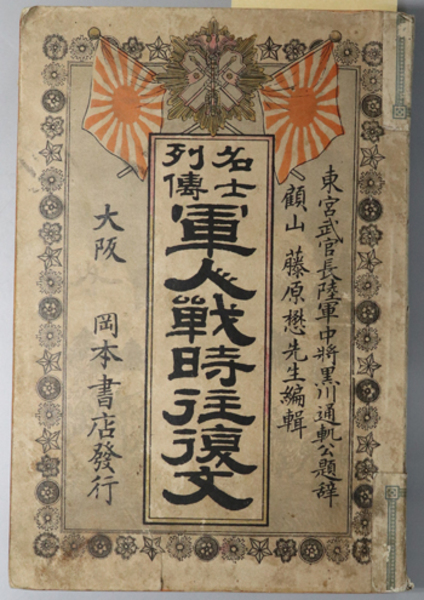 東宮武官長陸軍中將黒川通軌公題辞
顧山 藤原懋先生編輯
名士
列傳
軍人戦時往復文
大阪 岡本書店發行